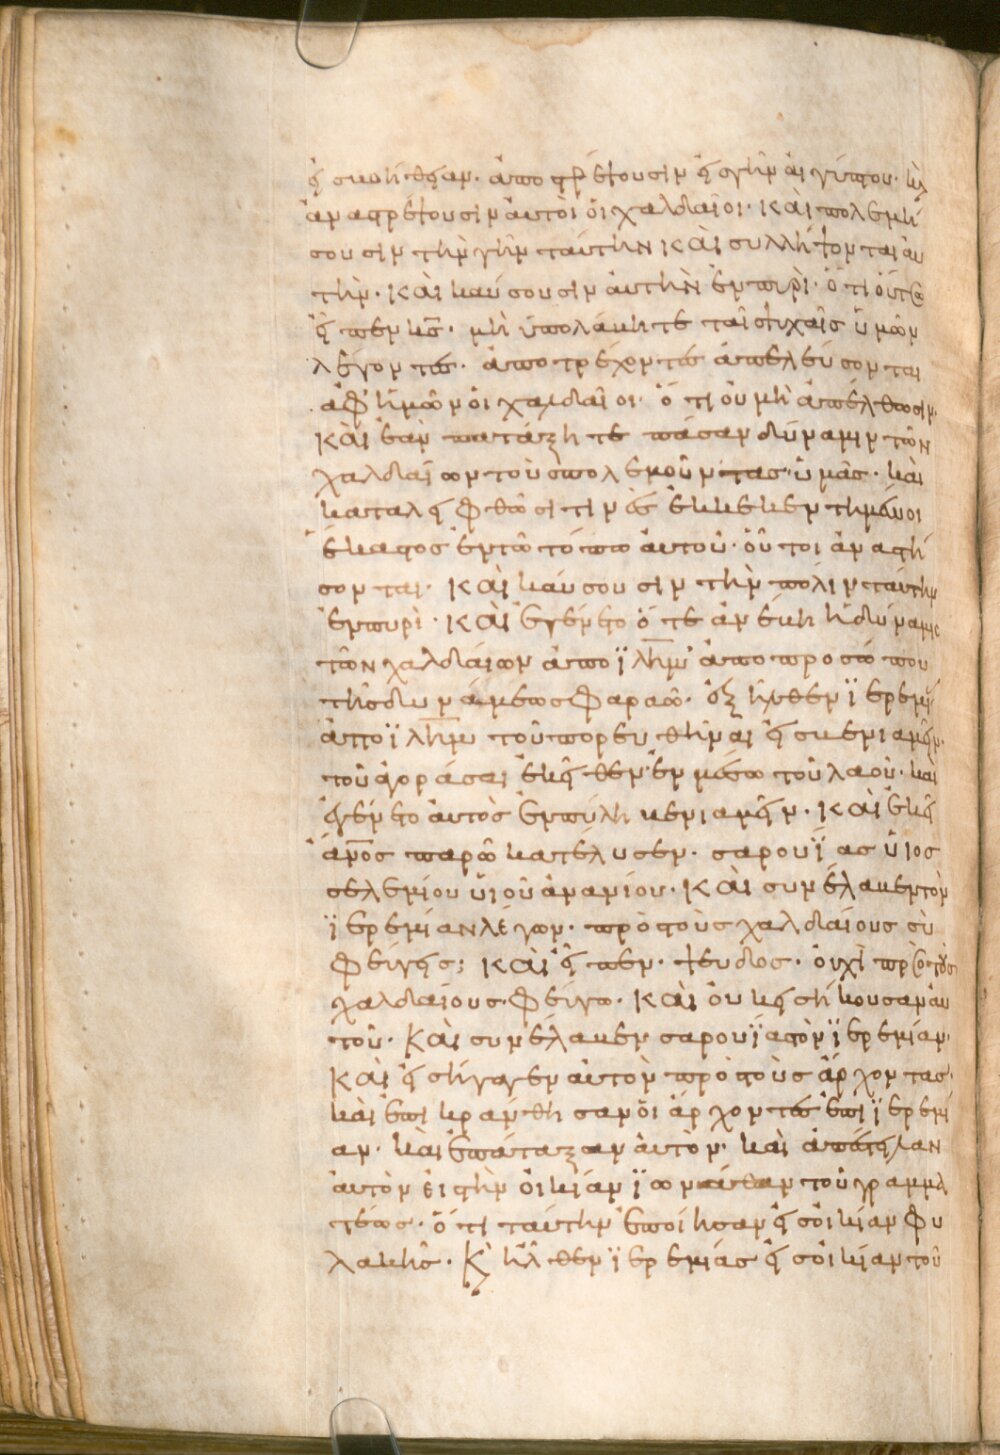 εἰς βοήθειαν· ἀποστρέψουσιν εἰς γῆν αἰγύπτου· καὶ
ἀναστρέψουσιν αὐτοὶ οἱ χαλδαῖοι· καὶ πολεμή
σουσιν τὴν γῆν ταύτην καὶ συλλήψονται αὐ
τήν· καὶ καύσουσιν αὐτὴν ἐν πυρὶ· ὅτι οὕτω
εἶπεν κς· μὴ ὑπολάβητε ταῖς ψυχαῖς ὑμῶν
λέγοντες· ἀποτρέχοντες ἀπελεύσονται
ἀφ ἡμῶν οἱ χαλδαῖοι· ὅτι οὐ μὴ ἀπέλθωσιν·
καὶ ἐὰν πατάξητε πάσαν δύναμιν τῶν
χαλδαίων τοὺς πολεμοῦντας ὑμᾶς· καὶ
καταλειφθῶσι τινὲς ἐκκεκεντημένοι
ἕκαστος ἐν τῶ τόπω αὐτοῦ· οὗτοι ἀναστή
σονται· καὶ καύσουσιν τὴν πόλιν ταύτην
ἐν πυρὶ· καὶ ἐγένετο ὅτε ἀνέβη ἡ δύναμις
τῶν χαλδαίων ἀπο ϊλημ ἀπο προσώπου
τῆς δυνάμεως φαραῶ· ἐξῆλθεν ϊερεμί
ἀπο ϊλημ τοῦ πορευθῆναι εἰς βενιαμεῖν·
τοῦ ἀγοράσαι ἐκεῖθεν ἐν μέσω τοῦ λαοῦ· καὶ
ἐγένετο αὐτὸς ἐν πύλη βενιαμεῖν· καὶ ἐκεῖ
ἄνος παρ ὧ κατέλυσεν· σαρουΐας υἱος
σελεμίου υἱοῦ ἀνανίου· καὶ συνέλαβεν τὸν
ϊερεμίαν λέγων· πρὸς τοὺς χαλδαίους σὺ
φεύγεις; καὶ εἶπεν· ψευδος· οὐχὶ πρὸς τοὺς
χαλδαίους φεύγω· καὶ οὐκ εἰσήκουσαν αὐ
τοῦ· καὶ συνέλαβεν σαρουΐα τὸν ϊερεμίαν·
καὶ εἰσήγαγεν αὐτὸν πρὸς τοὺς ἄρχοντας·
καὶ ἐπικράνθησαν οἱ ἄρχοντες ἐπὶ ϊερεμί
αν· καὶ ἐπάταξαν αὐτὸν· καὶ ἀπέστειλαν
αὐτὸν εἰς τὴν οἰκίαν ϊωνάθαν τοῦ γραμμα
τέως· ὅτι ταύτην ἐποίησαν εἰς οἰκίαν φυ
λακῆς· κ ἦλθεν ϊερεμίας εἰς οἰκίαν τοῦ